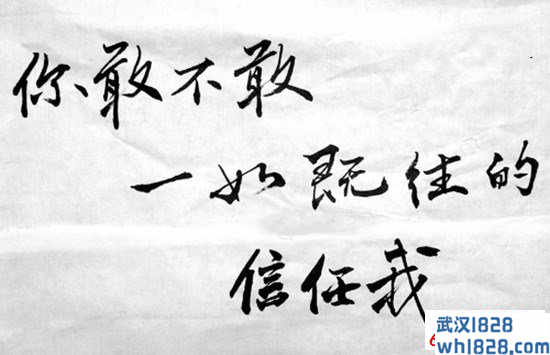 你敢不敢
一如既往的
信任我
武汉1828
wh1828.com